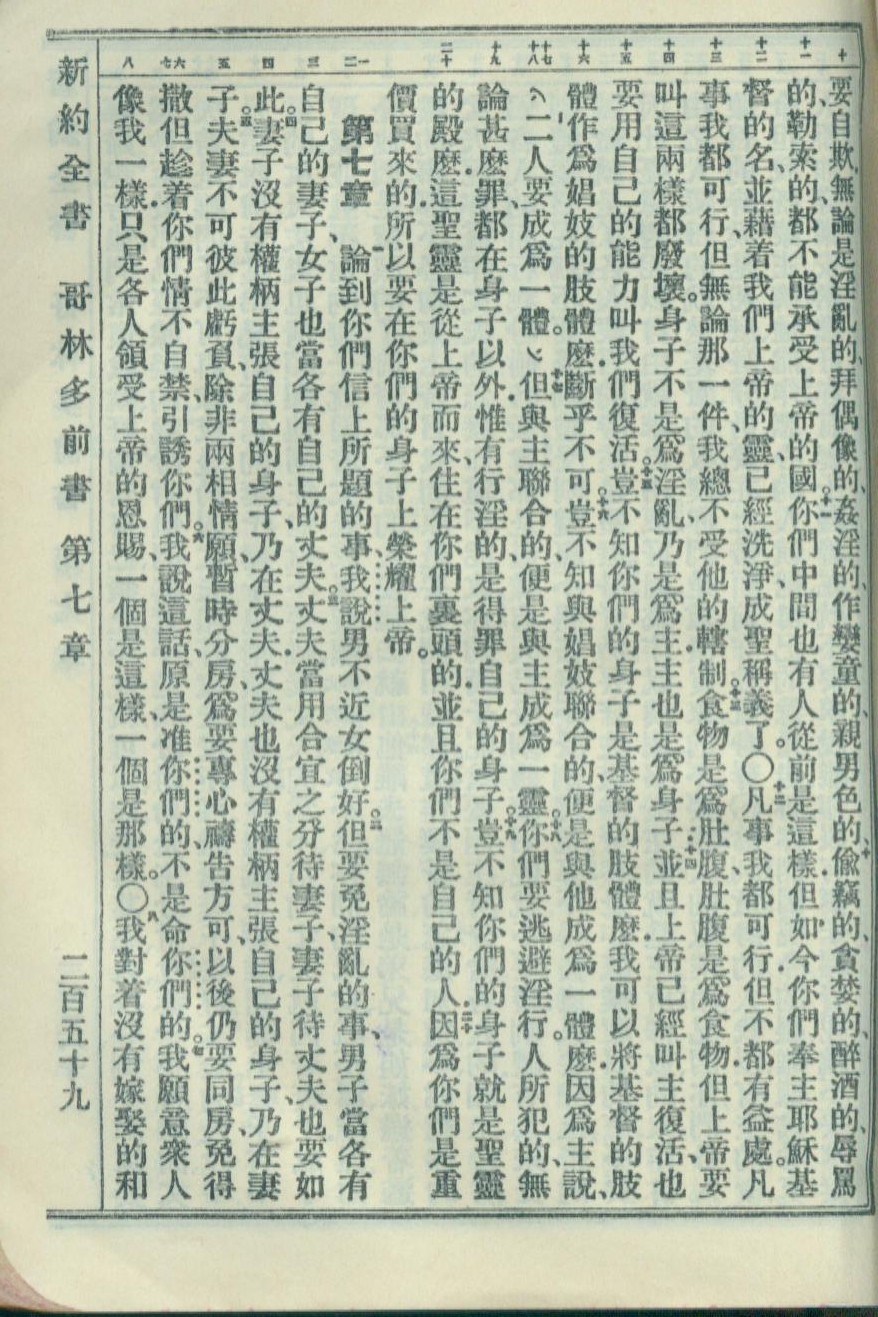 十 十一 十二 十三 十四 十五 十六 十七 十八 十九 二十 一 二 三 四 五 六 七 八
要自欺、無論是淫亂的、拜偶像的、姦淫的、作孌童的、親男色的、十偸竊的、貪婪的、醉酒的、辱罵
的、勒索的、都不能承受上帝的國。十一你們中間也有人從前是這樣、但如今你們奉主耶穌基
督的名、並藉着我們上帝的靈、已經洗淨成聖稱義了。〇十二凡事我都可行、但不都有益處。凡
事我都可行、但無論那一件、我總不受他的轄制。十三食物是爲肚腹、肚腹是爲食物、但上帝要
叫這兩樣都廢壞。身子不是爲淫亂、乃是爲主、主也是爲身子。十四並且上帝已經叫主復活、也
要用自己的能力叫我們復活。十五豈不知你們的身子是基督的肢體麽、我可以將基督的肢
體作爲娼妓的肢體麽、斷乎不可。十六豈不知與娼妓聯合的、便是與他成爲一體麽、因爲主說、
二人要成爲一體。十七但與主聯合的、便是與主成爲一靈。十八你們要逃避淫行。人所犯的、無
論甚麽罪、都在身子以外、惟有行淫的、是得罪自己的身子。十九豈不知你們的身子就是聖靈
的殿麽、這聖靈是從上帝而來、住在你們裏頭的、並且你們不是自己的人、二十因爲你們是重
價買來的、所以要在你們的身子上榮耀上帝。
第七章 一論到你們信上所題的事、我說男不近女倒好。二但要免淫亂的事、男子當各有
自己的妻子、女子也當各有自己的丈夫。三丈夫當用合宜之分待妻子、妻子待丈夫也要如
此。四妻子沒有權柄主張自己的身子、乃在丈夫、丈夫也沒有權柄主張自己的身子、乃在妻
子。五夫妻不可彼此虧負、除非兩相情願、暫時分房、爲要專心禱告方可、以後仍要同房、免得
撒但趁着你們情不自禁、引誘你們。六我說這話、原是准你們的、不是命你們的。七我願意衆人
像我一樣、只是各人領受上帝的恩賜、一個是這樣、一個是那樣。〇八我對着沒有嫁娶的和
新約全書 哥林多前書 第七章 二百五十九